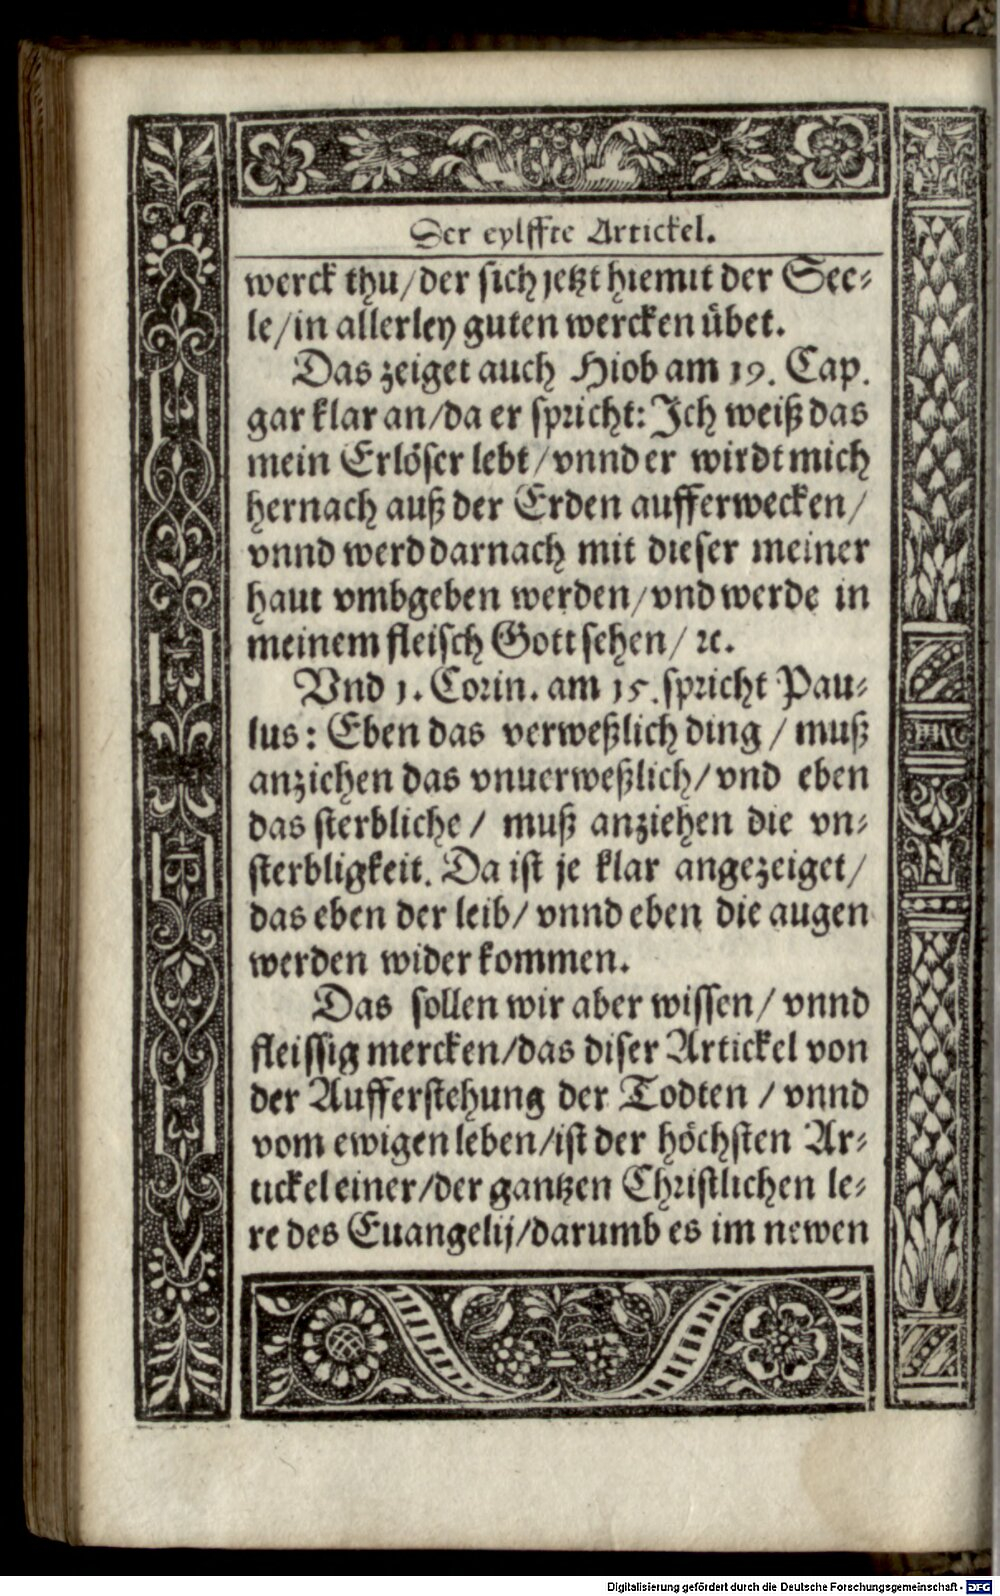 Der eylffte Artickel.
werck thu/der sich jetzt hiemit der See⸗
le/in allerley guten wercken übet.
Das zeiget auch Hiob am 19. Cap.
gar klar an/da er spricht: Ich weiß das
mein Erlöser lebt/vnnd er wirdt mich
hernach auß der Erden aufferwecken/
vnnd werd darnach mit dieser meiner
haut vmbgeben werden/vnd werde in
meinem fleisch Gott sehen/ ꝛc.
Vnd 1. Corin. am 15. spricht Pau⸗
lus: Eben das verweßlich ding / muß
anziehen das vnuerweßlich/vnd eben
das sterbliche / muß anziehen die vn⸗
sterbligkeit. Da ist je klar angezeiget/
das eben der leib/ vnnd eben die augen
werden wider kommen.
Das sollen wir aber wissen/ vnnd
fleissig mercken/das diser Artickel von
der Aufferstehung der Todten / vnnd
vom ewigen leben/ist der höchsten Ar⸗
tickel einer/der gantzen Christlichen le⸗
re des Euangelij/darumb es im newen
Digitalisierung gefördert durch die Deutsche Forschungsgemeinschaft - DFG